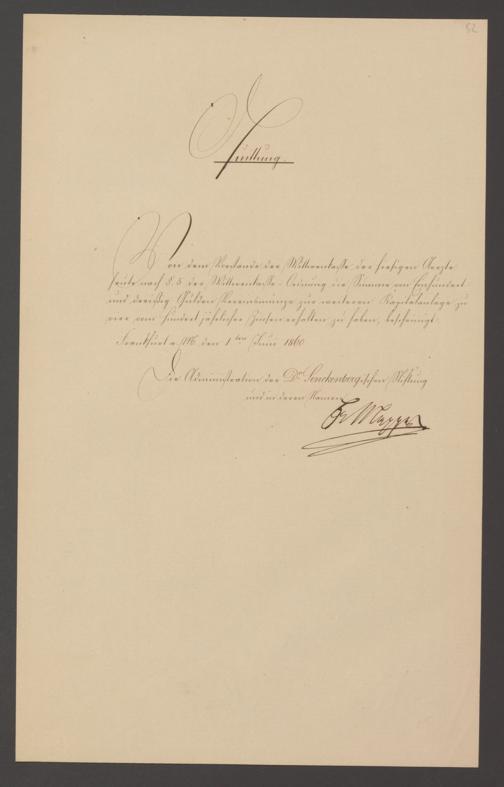 52
Quittung.
Von dem Vorstande der Wittwenkasse der hiesigen Aerzte
heute nach §. 5 der Wittwenkasse-Ordnung die Summe von Einhundert
und dreißig Gulden Vereinsmünze zur weiteren Kapitalanlage zu
vier vom Hundert jährlicher Zinsen erhalten zu haben, bescheinigt
Frankfurt a/M. den 1ten Juni 1860
Die Administration der Dr Senckenbergischen Stiftung
und in deren Namen